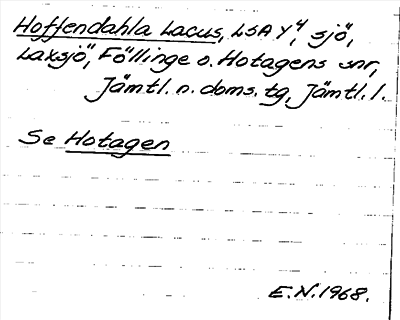 Hoffendahla Lacus, LSA Y⁴, sjö,
Laxsjö, Föllinge o. Hotagens snr,
Jämtl. n. doms. tg, Jämtl. l.
Se Hotagen
E.N. 1968.